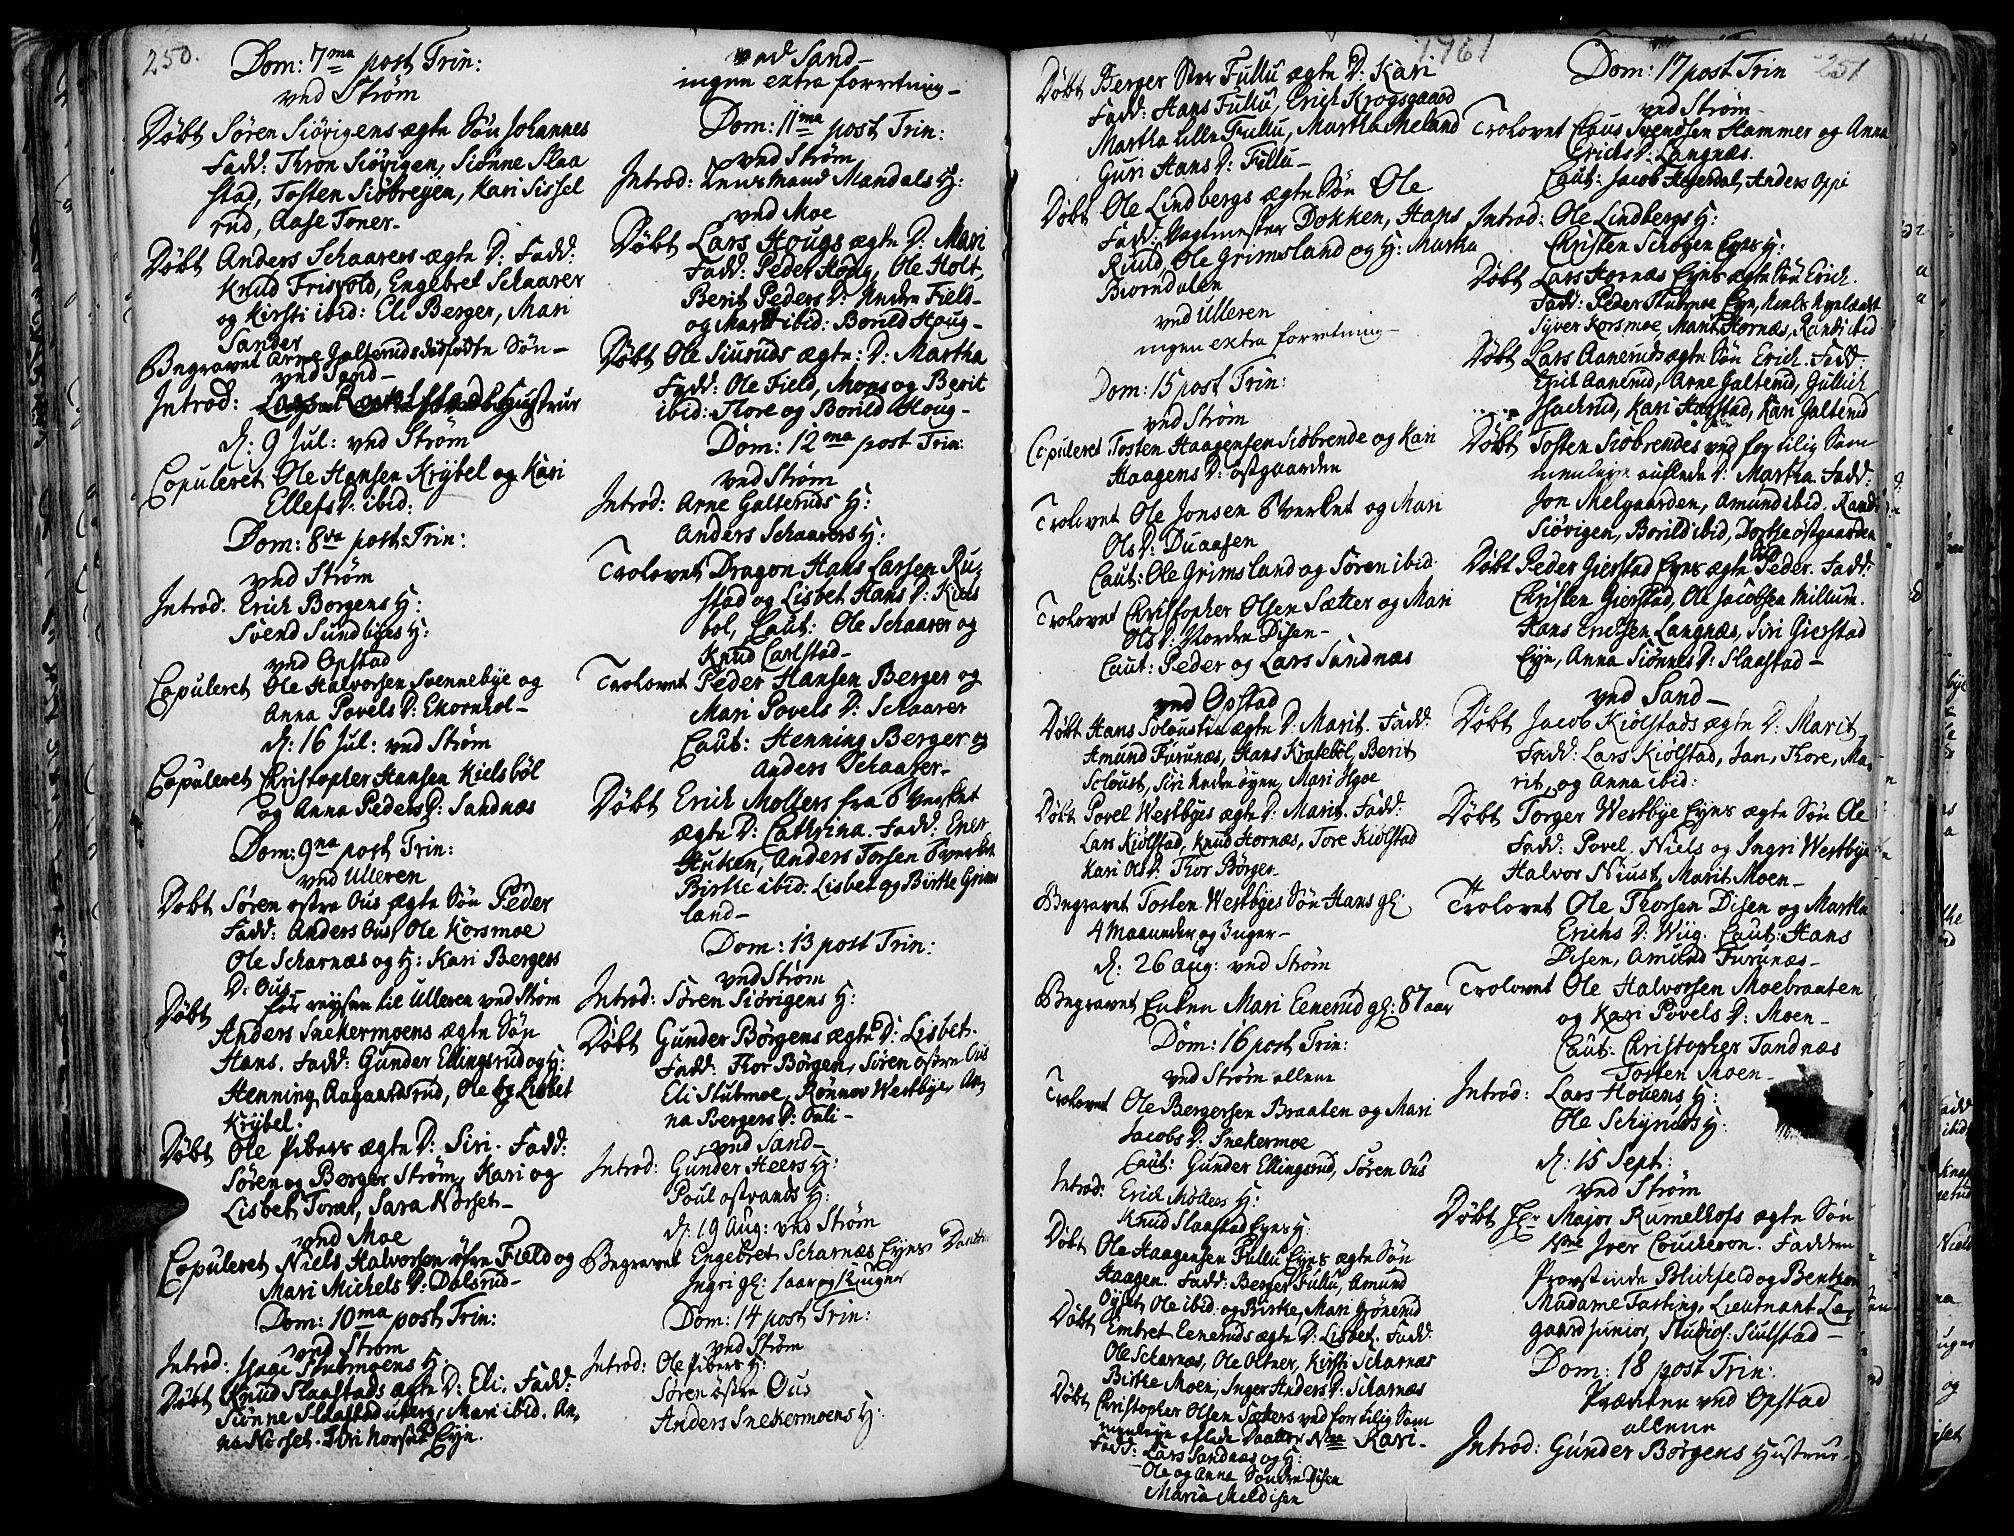 250.
Dom: 7ma post Trin:
ved Strøm
Døbt Søren Siøvigens ægte Søn Johannes
Fadd: Thron Siøvigen, Siønne Slaa
stad, Tosten Siøbreyen, Kari Sissel
rud, Aase Toner.
Døbt Anders Schaarers ægte D: Fadd:
Knud Trisvold, Engebret Schaarer
og Kirsti ibid: Eli Berger, Mari
Sander
Begravet Arne Galteruds dødfødte Søn
ved Sand
Introd: Hustrur
d: 9 Jul: ved Strøm
Copuleret Ole Hansen Krybel og Kari
Ellefs D: ibid:
Dom: 8va post Trin:
ved Strøm
Introd. Erich Borgens H:
Svend Sundbyes H:
ved Opstad
Copuleret Ole Halvorsen Svennebye og
Anna Povels D: Ekornhol
d: 16 Jul: ved Strøm
Copuleret Christopher Hansen Kielsbøl
og Anna Peders D: Sandnæs
Dom: 9na post Trin:
ved Ulleren
Døbt Søren østre Ous ægte Søn Peder
Fadd: Anders Ous, Ole Korsmoe
Ole Scharnæs og H: Kari Bergers
D: Ous
Døbt før reysen til Ulleren ved Strøm
Anders Snekermoens ægte Søn
Hans. Fadd: Gunder Ellingsrud og H:
Henning Aagaardsrud, Ole og Lisbet
Krybel.
Døbt Ole Pibers ægte D: Siri. Fadd:
Søren og Berger Strøm, Kari og
Lisbet Toner, Sara Norset
ved Moe
Copuleret Niels Halvorsen øfre Field og
Mari Michels D: Dalsrud
Dom: 10ma post Trin:
ved Strøm
Introd: Isaac Stubmoens H:
Døbt Knud Slaastads ægte D: Eli. Fadd:
Siønne Slaastad, Mari ibid. An,
na Norset. Siri Norset Eye.
ved Sand
ingen extra forretning
Dom: 11ma post Trin:
ved Strøm
Introd: Leutnand Mandals H:
ved Moe
Døbt Lars Hougs ægte D: Mari
Fadd: Peder Houg, Ole Holt,
Berit Peders D: Nedre Field
og Marit ibid: Borild Houg
Døbt Ole Siuruds ægte: D: Martha
Fadd: Ole Field, Mons og Berit
ibid: Thore og Borild Houg
Dom: 12ma post Trin:
ved Strøm
Introd: Arne Galteruds H:
Anders Schaarers H:
Trolovet Dragon Hans Larsen Ru,
stad og Lisbet Hans D: Kiels
bøl, Caut: Ole Schaarer og
Knud Carlstad
Trolovet Peder Hansen Berger og
Mari Povels D: Schaarer
Caut: Henning Berger og
Anders Schaarer
Døbt Erich Mollers fra Øverket
ægte D: Cathrina. Fadd: Ener
Huken, Anders Torsen Øverket
Birthe ibid: Lisbet og Birthe Grims
land
Dom: 13 post Trin:
ved Strøm
Introd: Søren Siøvigens H:
Døbt Gunder Børgens ægte D: Lisbet.
Fadd: Thor Børgen, Søren østre Ous
Eli Stubmoe, Rønnov Westbye, An,
na Bergers D: Fali
ved Sand
Introd: Gunder Heers H:
Poul Ostvands H:
d: 19 Aug: ved Strøm
Begravet Engebret Scharnæs Eyes Daatter
Ingri gl: 1 aar og 8 uger
Dom: 14 post Trin:
ved Strøm
Introd: Ole Pibers H:
Søren østre Ous
Anders Snekermoens H:
1761
Døbt Berger Fullu ægte D: Kari
Fadd: Hans Fullu, Erich Krogsgaard
Martha lille Fullu, Martha Meland
Guri Hans D: Fullu
Døbt Ole Lindbergs ægte Søn Ole
Fadd: Vagtmester Dokken, Hans
Ruud, Ole Grimsland og H: Martha
Brondalen
ved Ulleren
ingen extra forretning
Dom: 15 post Trin:
ved Strøm
Copuleret Tosten Haagensen Siøbrende og Kari
Haagens D: Østgaarden
Trolovet Ole Jonsen Øverket og Mari
Ols D: Duaasen
Caut: Ole Grimsland og Søren ibid.
Trolovet Christopher Olsen Sætter og Mari
Ols D: Nordre Disen
Caut: Peder og Lars Sandnæs
ved Opstad
Døbt Hans Soloustøens ægte D: Marit. Fadd:
Amund Furunæs, Hans Kratebøl, Berit
Soloust, Siri Nedre Øyen, Mari Hgoe
Døbt Povel Westbyes ægte D: Marit. Fadd:
Lars Kiølstad, Knud Hornæs, Tore Kiølstad
Kari Ols D: Thor Børger
Begravet Tosten Westbyes Søn Hans gl:
4 Maaneder og 3 uger
d: 26 Aug: ved Strøm
Begravet Enken Mari Eenerud gl: 87 aar
Dom: 16 post Trin:
ved Strøm allene
Trolovet Ole Bergersen Braaten og Mari
Jacobs D: Snekermoe
Caut: Gunder Ellingsrud, Søren Ous
Introd: Erich Møllers H:
Knud Slaastad Eyes H:
Døbt Ole Haagensen Fullu Eyes ægte Søn
Haagen. Fadd: Berger Fullu, Amund
Oyset, Ole ibid. og Birthe, Mari Grønerud
Døbt Embret Eeneruds ægte D: Lisbet. Fadd:
Ole Scharnæs, Ole Oltner, Kirsti Scharnæs
Birthe Moen, Inger Anders D: Scharnæs
Døbt Christopher Olsen Sæters ved for tilig Sam
menleye aflede Daatter Nne Kari
Fadd: Lars Sandnæs og H:
Ole og Anna Søndre Disen
Maria Meldisen
251
Dom: 17 post Trin
ved Strøm
Trolovet Claus Svendsen Hammer og Anna
Erichs D: Langnæs.
Caut: Jacob Aasendal, Anders Oppi
Introd: Ole Lindbergs H:
Christen Schøyen Eyes H:
Døbt Lars Hornæs Eyes ægte Søn Erich.
Fadd: Peder Stubmoe Eye, Niels
Syver Korsmoe, Marit Hornæs, Randi ibid
Døbt Lars Aaneruds ægte Søn Erich. Fadd:
Erich Aanerud, Arne Galterud, Gullich
Isachrud, Kari Harstad, Kari Galterud
Døbt Tosten Siøbrendes ved for tilig Sam
menleye auflede D: Martha. Fadd:
Jon Melgaarden, Amund ibid. Randi
Siøvigen, Borild ibid, Dorthe Østgaarden
Døbt Peder Gierstad Eyes ægte Peder. Fadd:
Christen Gierstad, Ole Jacobsen Millum.
Hans Erichsen Langnæs, Siri Gierstad
Eye, Anna Siønnes D: Slaastad
ved Sand
Døbt Jacob Kiølstads ægte D: Marit
Fadd: Lars Kiølstad, Jan, Thore, Ma,
rit, og Anna ibid:
Døbt Torger Westbye Eyes ægte Søn Ole
Fadd: Povel, Niels og Ingri Westbye
Halvor Niust, Marit Moen
Trolovet Ole Thorsen Disen og Martha
Erichs D: Wiig. Caut: Hans
Disen, Amund Furunæs
Trolovet Ole Halvorsen Moebraaten
og Kari Povels D: Moen
Caut: Christopher Sandnæs
Tosten Moen
Introd: Lars Houens H:
Ole Schyruds H:
d: 15 Sept:
ved Strøm
Døbt Hr Major Rumelhofs ægte Søn
Nne Iver Coucheron. Fadden
Provstinde Blichfeld og Bentzen
Madame Tasting, Lieutnant Le,
gaard junior, Studios: Siulstad
Dom: 18 post Trin:
Præken ved Opstad
allene
Introd: Gunder Børgens Hustrur